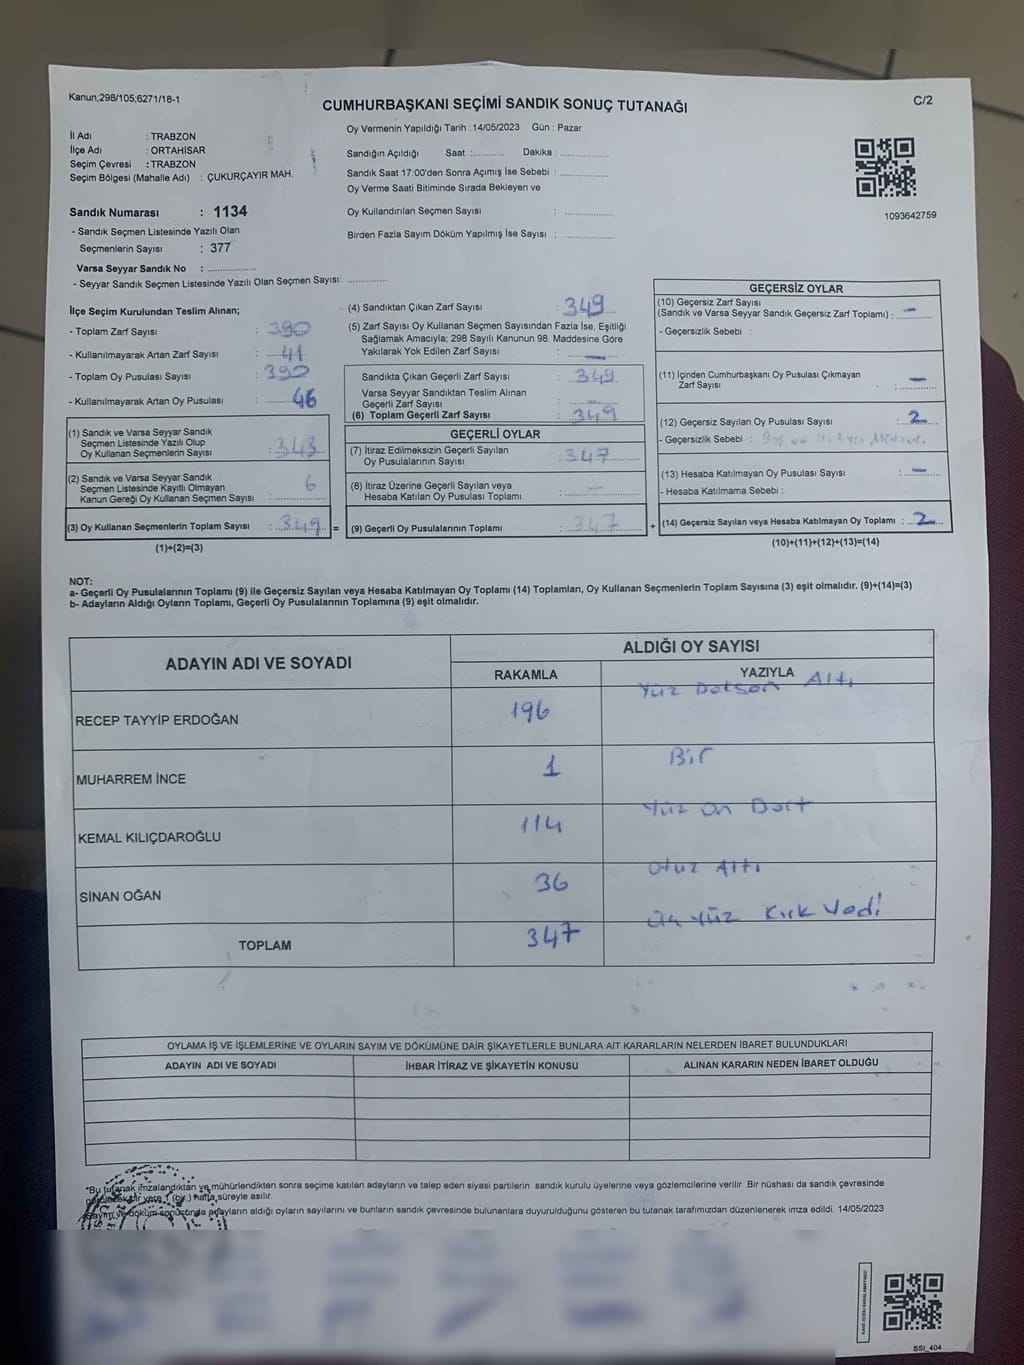 Kanun,298/105;6271/18-1
C/2
CUMHURBAŞKANI SEÇİMİ SANDIK SONUÇ TUTANAĞI
Oy Vermenin Yapıldığı Tarih :14/05/2023 Gün : Pazar
İl Adı : TRABZON
İlçe Adı : ORTAHİSAR
Seçim Çevresi : TRABZON
Seçim Bölgesi (Mahalle Adı) : ÇUKURÇAYIR MAH.
Sandığın Açıldığı Saat :........... Dakika : ................
Sandık Saat 17:00'den Sonra Açımış İse Sebebi : ................
Oy Verme Saati Bitiminde Sırada Bekleyen ve
Oy Kullandırılan Seçmen Sayısı : ................
Birden Fazla Sayım Döküm Yapılmış İse Sayısı : ................
1093642759
Sandık Numarası : 1134
- Sandık Seçmen Listesinde Yazılı Olan
Seçmenlerin Sayısı : 377
Varsa Seyyar Sandık No : ................
- Seyyar Sandık Seçmen Listesinde Yazılı Olan Seçmen Sayısı: .............
İlçe Seçim Kurulundan Teslim Alınan;
- Toplam Zarf Sayısı : 390
- Kullanılmayarak Artan Zarf Sayısı : 41
- Toplam Oy Pusulası Sayısı : 390
- Kullanılmayarak Artan Oy Pusulası : 46
(1) Sandık ve Varsa Seyyar Sandık
Seçmen Listesinde Yazılı Olup
Oy Kullanan Seçmenlerin Sayısı : 343
(2) Sandık ve Varsa Seyyar Sandık
Seçmen Listesinde Kayıtlı Olmayan
Kanun Gereği Oy Kullanan Seçmen Sayısı : 6
(3) Oy Kullanan Seçmenlerin Toplam Sayısı : 349 =
(1)+(2)=(3)
(4) Sandıktan Çıkan Zarf Sayısı : 349
(5) Zarf Sayısı Oy Kullanan Seçmen Sayısından Fazla İse, Eşitliği
Sağlamak Amacıyla; 298 Sayılı Kanunun 98. Maddesine Göre
Yakılarak Yok Edilen Zarf Sayısı : —
Sandıkta Çıkan Geçerli Zarf Sayısı : 349
Varsa Seyyar Sandıktan Teslim Alınan
Geçerli Zarf Sayısı : —
(6) Toplam Geçerli Zarf Sayısı : 349
GEÇERLİ OYLAR
(7) İtiraz Edilmeksizin Geçerli Sayılan
Oy Pusulalarının Sayısı : 347
(8) İtiraz Üzerine Geçerli Sayılan veya
Hesaba Katılan Oy Pusulası Toplamı : —
(9) Geçerli Oy Pusulalarının Toplamı : 347 +
GEÇERSİZ OYLAR
(10) Geçersiz Zarf Sayısı
(Sandık ve Varsa Seyyar Sandık Geçersiz Zarf Toplamı) : —
- Geçersizlik Sebebi :
(11) İçinden Cumhurbaşkanı Oy Pusulası Çıkmayan
Zarf Sayısı : —
(12) Geçersiz Sayılan Oy Pusulası Sayısı : 2
- Geçersizlik Sebebi :
(13) Hesaba Katılmayan Oy Pusulası Sayısı : —
- Hesaba Katılmama Sebebi :
(14) Geçersiz Sayılan veya Hesaba Katılmayan Oy Toplamı : 2
(10)+(11)+(12)+(13)=(14)
NOT:
a- Geçerli Oy Pusulalarının Toplamı (9) ile Geçersiz Sayılan veya Hesaba Katılmayan Oy Toplamı (14) Toplamları, Oy Kullanan Seçmenlerin Toplam Sayısına (3) eşit olmalıdır. (9)+(14)=(3)
b- Adayların Aldığı Oyların Toplamı, Geçerli Oy Pusulalarının Toplamına (9) eşit olmalıdır.
ADAYIN ADI VE SOYADI
ALDIĞI OY SAYISI
RAKAMLA YAZIYLA
RECEP TAYYİP ERDOĞAN 196 Yüz Doksan Altı
MUHARREM İNCE 1 Bir
KEMAL KILIÇDAROĞLU 114 Yüz On Dört
SİNAN OĞAN 36 Otuz Altı
TOPLAM 347 Üç Yüz Kırk Yedi
OYLAMA İŞ VE İŞLEMLERİNE VE OYLARIN SAYIM VE DÖKÜMÜNE DAİR ŞİKAYETLERLE BUNLARA AİT KARARLARIN NELERDEN İBARET BULUNDUKLARI
ADAYIN ADI VE SOYADI İHBAR İTİRAZ VE ŞİKAYETİN KONUSU ALINAN KARARIN NEDEN İBARET OLDUĞU
*Bu tutanak imzalandıktan ve mühürlendikten sonra seçime katılan adayların ve talep eden siyasi partilerin sandık kurulu üyelerine veya gözlemcilerine verilir .Bir nüshası da sandık çevresinde
yere 1 (bir ) hafta süreyle asılır.
ve döküm sonuçtında adayların aldığı oyların sayılarını ve bunların sandık çevresinde bulunanlara duyurulduğunu gösteren bu tutanak tarafımızdan düzenlenerek imza edildi. 14/05/2023
SSI_404